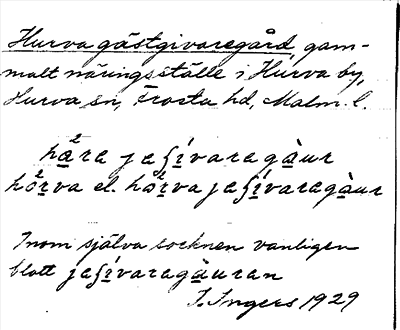 Hurva gästgivaregård, gam-
malt näringsställe i Hurva by,
Hurva sn, Frosta hd, Malm. l.
ha²ra jaʃívaragàur
hö²rva el. hö²rva jaʃívaragàur
Inom själva socknen vanligen
blott jaʃívaragàuran
I. Ingers 1929